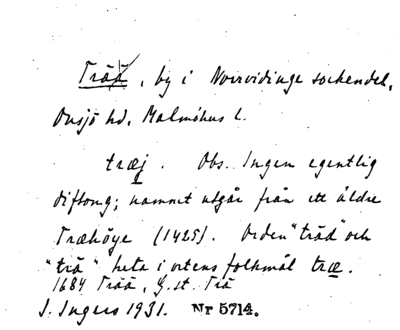 Trää, by i Norrvidinge sockendel,
Onsjö hd, Malmöhus l.
træj. Obs. Ingen egentlig
diftong; namnet utgår från ett äldre
Træhöye (1425). Orden "träd" och
"trä" heta i ortens folkmål træ.
1684 Trää, G. st. Trä
I. Ingers 1931. Nr 5714.